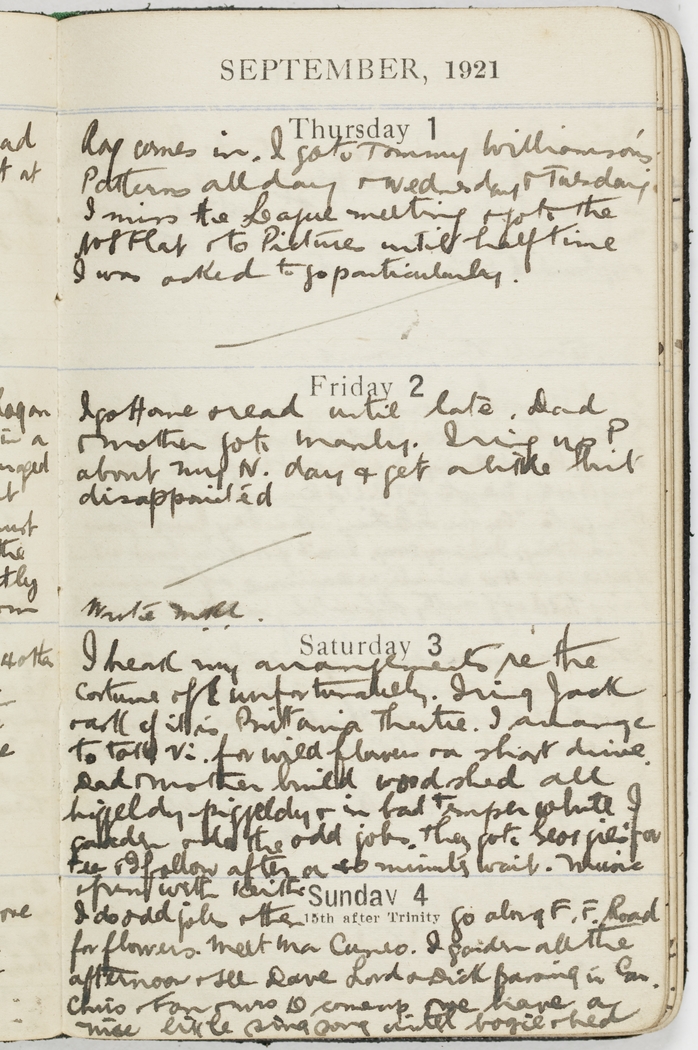 SEPTEMBER, 1921
Thursday 1
Ray comes in. I go to Tommy Williamson's
Patterns all day & Wednesday & Tuesday.
I miss the League meeting & go to the
Flat & to Pictures until half time
I was asked to go particularly.
Friday 2
I go Home & read until late. Dad
& mother go to Manly. I ring up P
about my N. day & get a little bit
disappointed
Wrote Moll.
Saturday 3
I break my arrangements re the
costume off unfortunately. I ring Jack
& ask if it is Brittania Theatre. I arrange
to take Vi. for wild flowers & a short drive.
Dad & mother build woodshed all
higgeldy-piggeldy & in bad temper while I
garden & do the odd jobs. they go to Georgies for
tea & I follow after a 40 minutes wait. Music
& fun with Keith.
Sunday 4
15th after Trinity
I do odd jobs & then go along F. F. Road
for flowers. Meet Ma Cuneo. I garden all the
afternoon & see Dave Lord & Dick passing in Car.
Chris & Fan & Mrs D come up & we have a
nice little sing song until